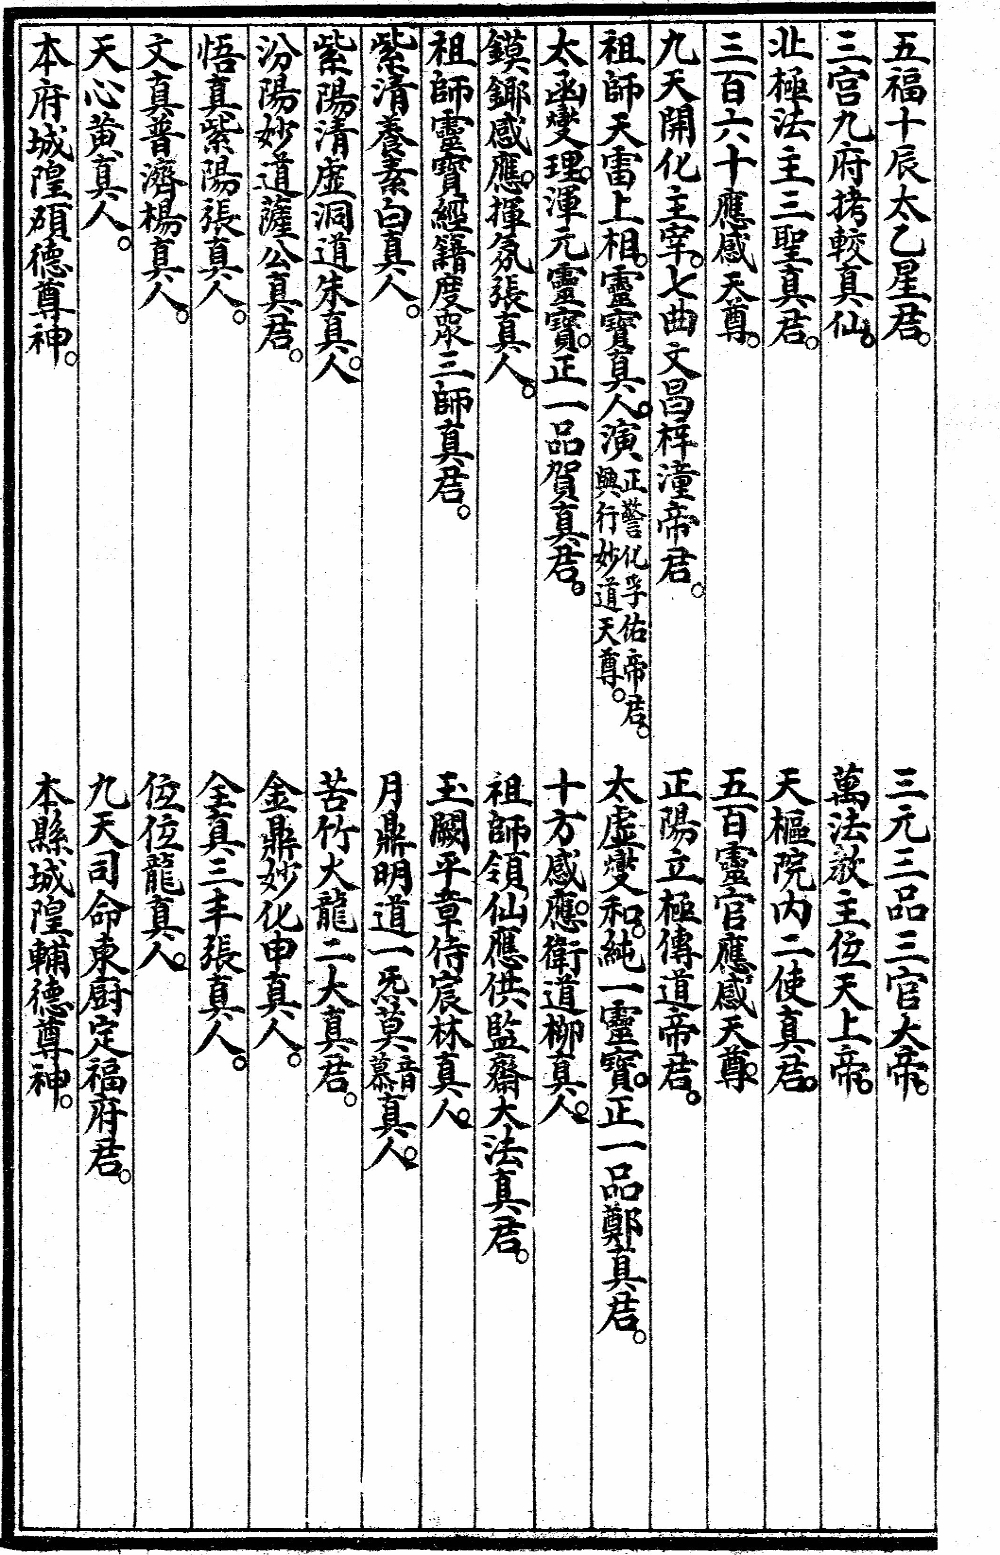 五福十辰太乙星君。三元三品三官大帝。
三宮九府挍較真仙。萬法教主位天上帝。
北極法主三聖真君。天樞院內二使真君。
三百六十應感天尊。五百靈官應感天尊。
九天開化主宰。七曲文昌梓潼帝君。正陽立極傳道帝君。
祖師天雷上相。靈寶真人。演正警化孚佑帝君。興行妙道天尊。太虛變和。純一靈寶。正一品鄭真君。
太函變理。渾元靈寶。正一品賀真君。十方感應。衛道柳真人。
鏌鎁感應。揮氛張真人。祖師領仙應供監齋大法真君。
祖師靈寶經籍度眾三師真君。玉闕平章侍宸林真人。
紫清養素白真人。月鼎明道一炁莫音慕真人。
紫陽清虛洞道朱真人。苦竹大龍二大真君。
汾陽妙道薩公真君。金鼎妙化申真人。
悟真紫陽張真人。全真三丰張真人。
文真普濟楊真人。位位龍真人。
天心黄真人。九天司命東廚定福府君。
本府城隍碩德尊神。本縣城隍輔德尊神。